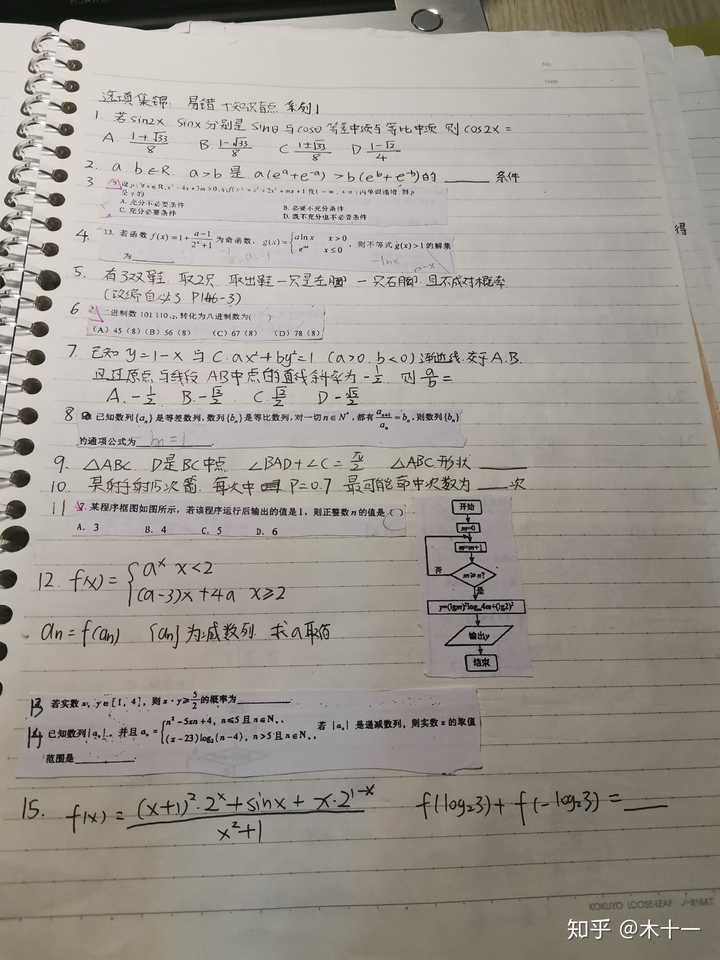 选项集锦: 易错+知识盲点 系列1
1. 若sin2x, sinx 分别是 sinθ与cosθ 等差中项与等比中项 则 cos2x =
A. (1+√33)/8 B. (1-√33)/8 C (1±√33)/8 D (1-√2)/4
2. a b∈R. a>b 是 a(e^a+e^-a)>b(e^b+e^-b)的 ______ 条件
3
A. 充分不必要条件 B. 必要不充分条件
C. 充分必要条件 D. 既不充分也不必要条件
4. 13. 若函数 f(x)=1+(a-1)/(2^x+1) 为奇函数, g(x)={alnx x>0, e^ax x≤0, 则不等式 g(x)>1 的解集
为
5. 有3双鞋 取2只 取出鞋一只是左脚 一只右脚 且不成对概率
(改编自必修3 P146-3)
6 二进制数 101 110(2)转化为八进制数为( )
(A) 45(8) (B) 56(8) (C) 67(8) (D) 78(8)
7. 已知 y=1-x 与 C: ax²+by²=1 (a>0, b<0) 渐近线交于A.B.
且过原点与线段AB中点的直线斜率为 -1/2 则 a/b =
A. -1/2 B. -√2/2 C √2/2 D -√2/2
8 已知数列{aₙ}是等差数列, 数列{bₙ}是等比数列, 对一切n∈N*, 都有 aₙ₊₁/aₙ=bₙ, 则数列{bₙ}
的通项公式为 bn=1
9. △ABC. D是BC中点 ∠BAD+∠C=π/2 △ABC形状 ____
10. 某射手射15次箭. 每次中 P=0.7 最可能命中次数为 ____次
11 某程序框图如图所示, 若该程序运行后输出的值是1, 则正整数n的值是( )
A. 3 B. 4 C. 5 D. 6
开始
m=0
m=m+1
否
m≥n?
是
输出y
结束
12. f(x)={a^x x<2
(a-3)x+4a x≥2
an=f(an) {an}为减数列 求a取值
13 若实数x, y∈[1, 4], 则x·y≥5/2的概率为
14 已知数列{aₙ}, 并且aₙ={n²-5xn+4, n≤5且n∈N₊, (x-23)log₂(n-4), n>5且n∈N₊, 若{aₙ}是递减数列, 则实数x的取值
范围是
15. f(x)=((x+1)²·2^x+sinx+x·2^(1-x))/(x²+1) f(log₂3)+f(-log₂3)=____
得
KOKUYO LOOSE-LEAF
知乎 @木十一